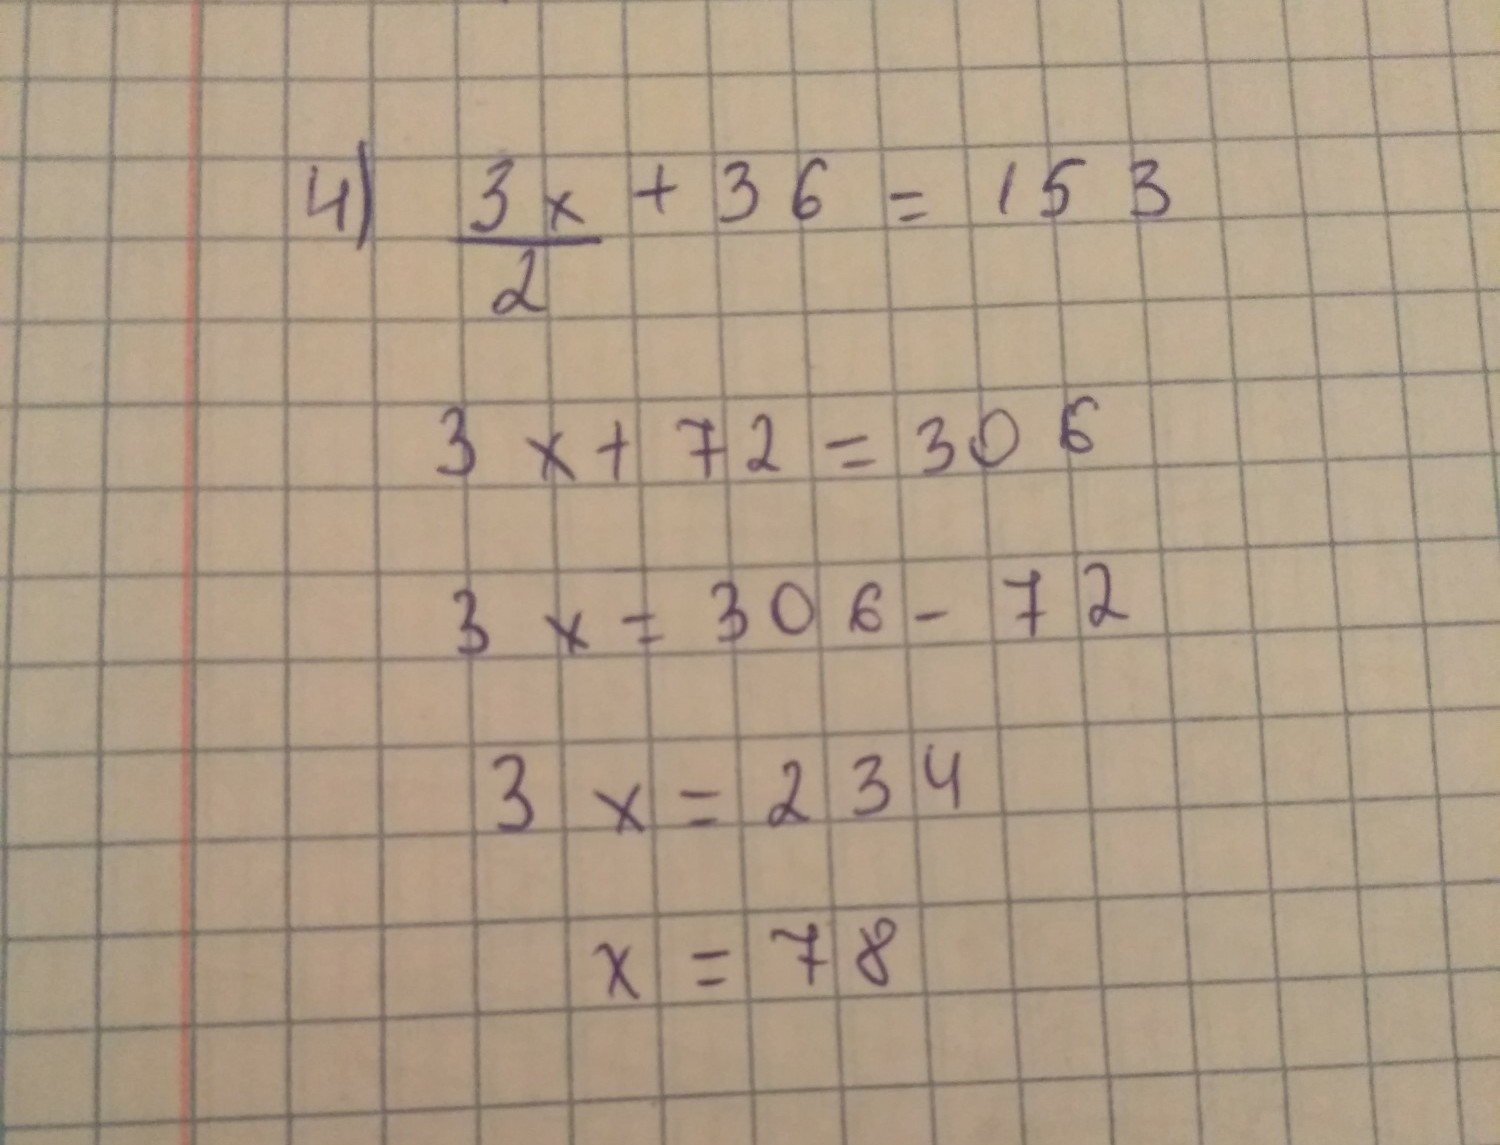 4) 3x/2 + 36 = 153
3x + 72 = 306
3x = 306 - 72
3x = 234
x = 78